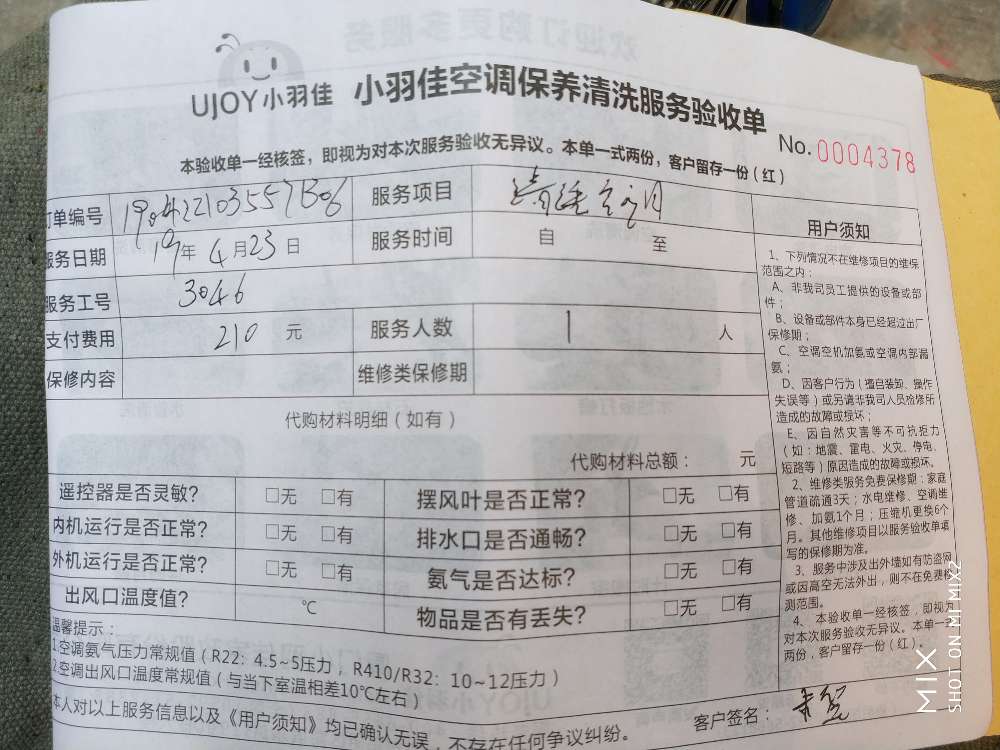 UJOY小羽佳 小羽佳空调保养清洗服务验收单
No. 0004378
本验收单一经核签，即视为对本次服务验收无异议。本单一式两份，客户留存一份（红）
订单编号 服务项目 清洗空调
服务日期 19年 4月23日 服务时间 自 至
服务工号 3046
支付费用 210 元 服务人数 1 人
保修内容 维修类保修期
代购材料明细（如有）
代购材料总额： 元
遥控器是否灵敏？ □无 □有 摆风叶是否正常？ □无 □有
内机运行是否正常？ □无 □有 排水口是否通畅？ □无 □有
外机运行是否正常？ □无 □有 氨气是否达标？ □无 □有
出风口温度值？ ℃ 物品是否有丢失？ □无 □有
温馨提示：
1.空调氨气压力常规值（R22：4.5~5压力，R410/R32：10~12压力）
2.空调出风口温度常规值（与当下室温相差10℃左右）
本人对以上服务信息以及《用户须知》均已确认无误，不存在任何争议纠纷。 客户签名：
用户须知
1、下列情况不在维修项目的维保
范围之内：
A、非我司员工提供的设备或部
件；
B、设备或部件本身已经超过出厂
保修期；
C、空调空机加氨或空调内部漏
氨；
D、因客户行为（擅自装卸、操作
失误等）或另请非我司人员检修所
造成的故障或损坏；
E、因自然灾害等不可抗拒力
（如：地震、雷电、火灾、停电、
短路等）原因造成的故障或损坏。
2、维修类服务免费保修期：家庭
管道疏通3天；水电维修、空调维
修、加氨1个月；压缩机更换6个
月。其他维修项目以服务验收单填
写的保修期为准。
3、服务中涉及出外墙如有防盗网
或因高空无法外出，则不在免费检
测范围。
4、本验收单一经核签，即视为
对本次服务验收无异议。本单一式
两份，客户留存一份（红）。
MIX
SHOT ON MI MIX2